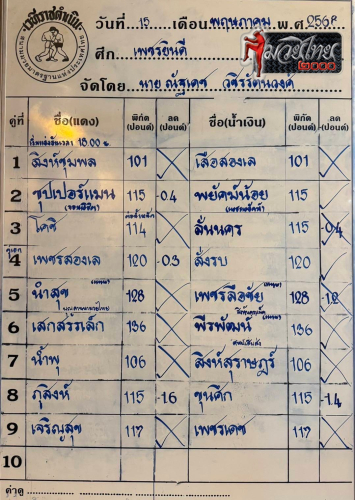 เวทีราชดำเนิน
วันที่ 15 เดือน พฤษภาคม พ.ศ. 2568
ศึก เพชรยินดี
มวยไทย
2000
จัดโดย นาย ณัฐเดช วชิรรัตนวงศ์
คู่ที่ ชื่อ(แดง) พิกัด (ปอนด์) ลด (ปอนด์) ชื่อ(น้ำเงิน) พิกัด (ปอนด์) ลด (ปอนด์)
1 สิงห์ชุมพล 101 เสือลองเล 101
2 ซุปเปอร์แมน 115 -0.4 พยัคฆ์น้อย 115
3 โคชิ 114 ลั่นนคร 115 -0.4
คู่เอก
4 เพชรลองเล 120 -0.3 สั่งรบ 120
5 นำสุข 128 เพชรลือชัย 128 -1.2
6 เสกสรรเล็ก 136 พีรพัฒน์ 136
7 น้ำพุ 106 สิงห์สุราษฎร์ 106
8 ภูสิงห์ 115 -1.6 ขุนศึก 115 -1.4
9 เจริญสุข 117 เพชรเดช 117
10
ค่าดู